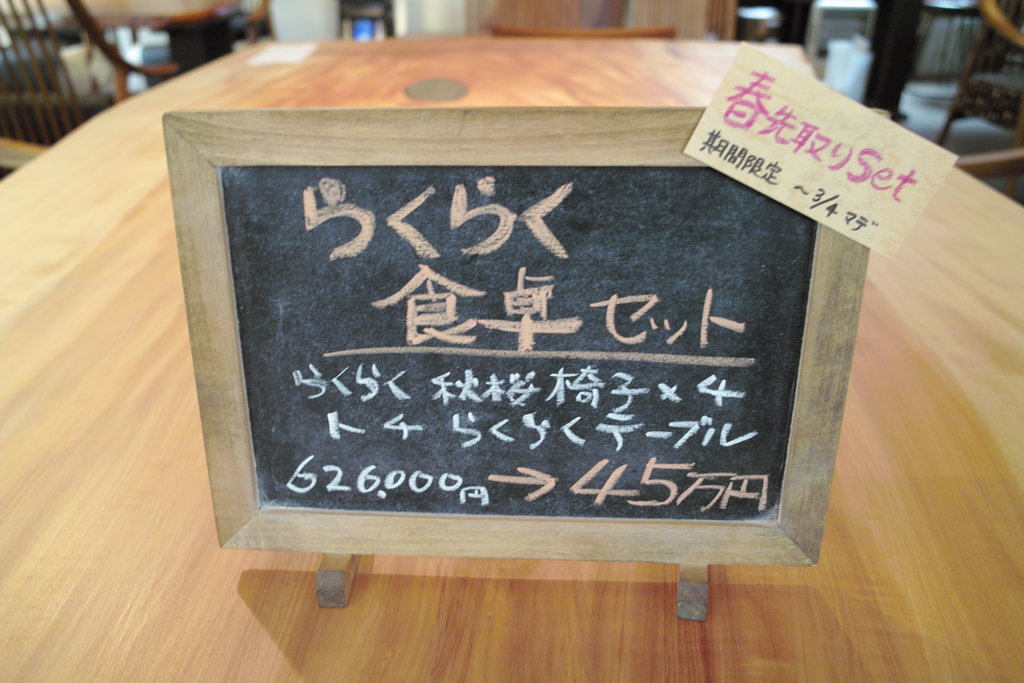 春先取りSet
期間限定 ～3/4マデ
らくらく
食卓セット
らくらく 秋桜椅子×4
トチ らくらくテーブル
626,000円→45万円